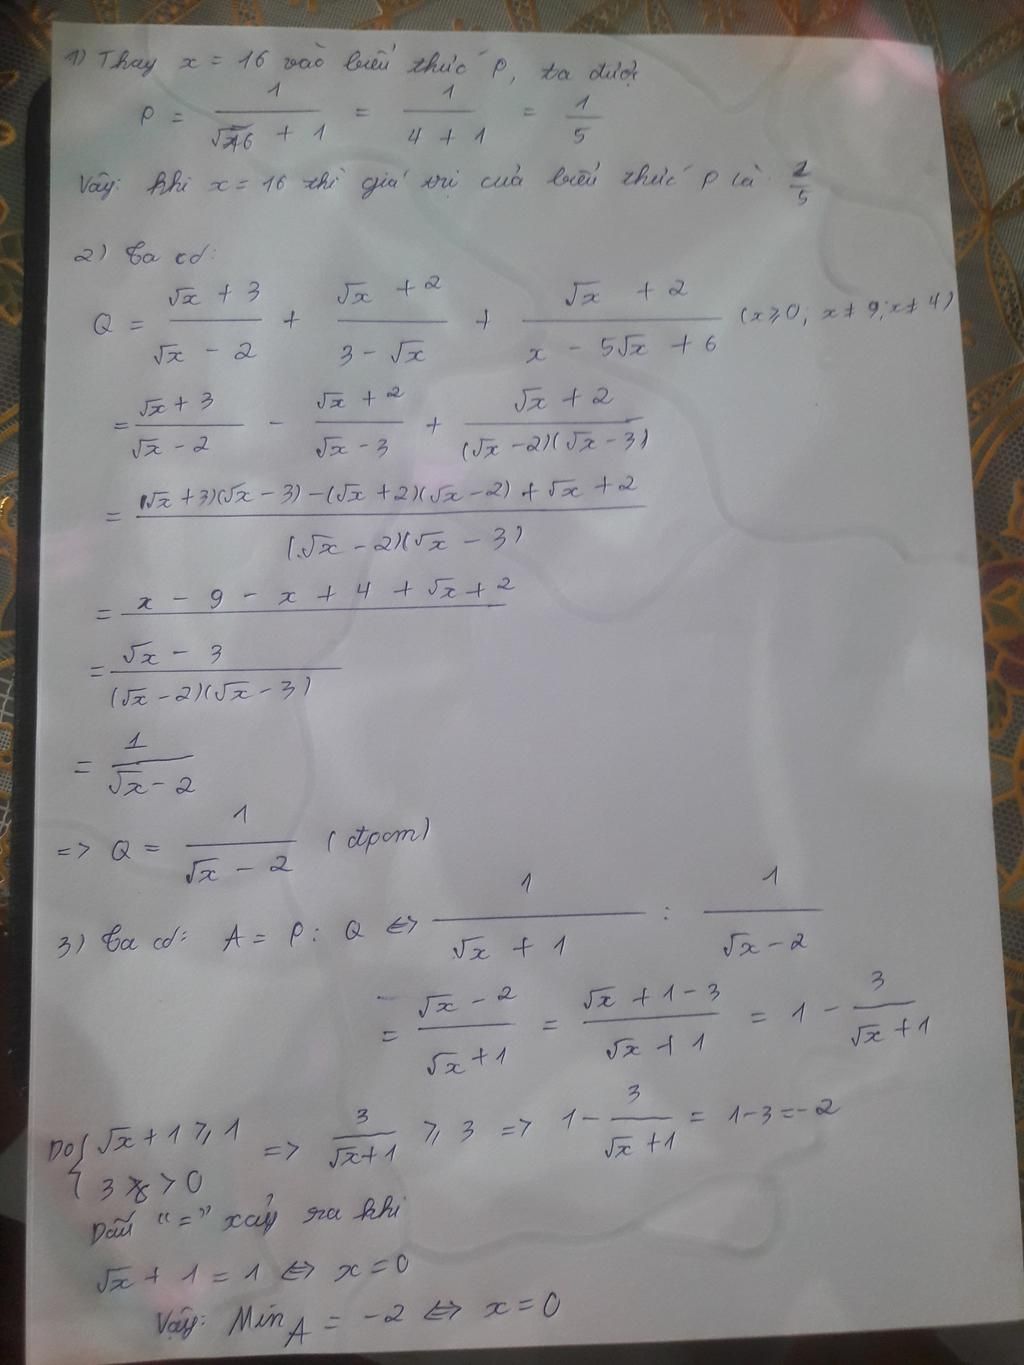 1) Thay x = 16 vào biểu thức P, ta được
P = 1/(√16 + 1) = 1/(4 + 1) = 1/5
Vậy: khi x = 16 thì giá trị của biểu thức P là 1/5
2) Ta có:
Q = (√x + 3)/(√x - 2) + (√x + 2)/(3 - √x) + (√x + 2)/(x - 5√x + 6) (x ≥ 0; x ≠ 9; x ≠ 4)
= (√x + 3)/(√x - 2) - (√x + 2)/(√x - 3) + (√x + 2)/((√x - 2)(√x - 3))
= ((√x + 3)(√x - 3) - (√x + 2)(√x - 2) + √x + 2)/((√x - 2)(√x - 3))
= x - 9 - x + 4 + √x + 2
= (√x - 3)/((√x - 2)(√x - 3))
= 1/(√x - 2)
=> Q = 1/(√x - 2) (đpcm)
3) Ta có: A = P : Q ⇔ 1/(√x + 1) : 1/(√x - 2)
= (√x - 2)/(√x + 1) = (√x + 1 - 3)/(√x + 1) = 1 - 3/(√x + 1)
Do { √x + 1 ≥ 1 => 3/(√x + 1) ≥ 3 => 1 - 3/(√x + 1) = 1 - 3 = -2
3 > 0
Dấu "=" xảy ra khi
√x + 1 = 1 ⇔ x = 0
Vậy: Min A = -2 ⇔ x = 0